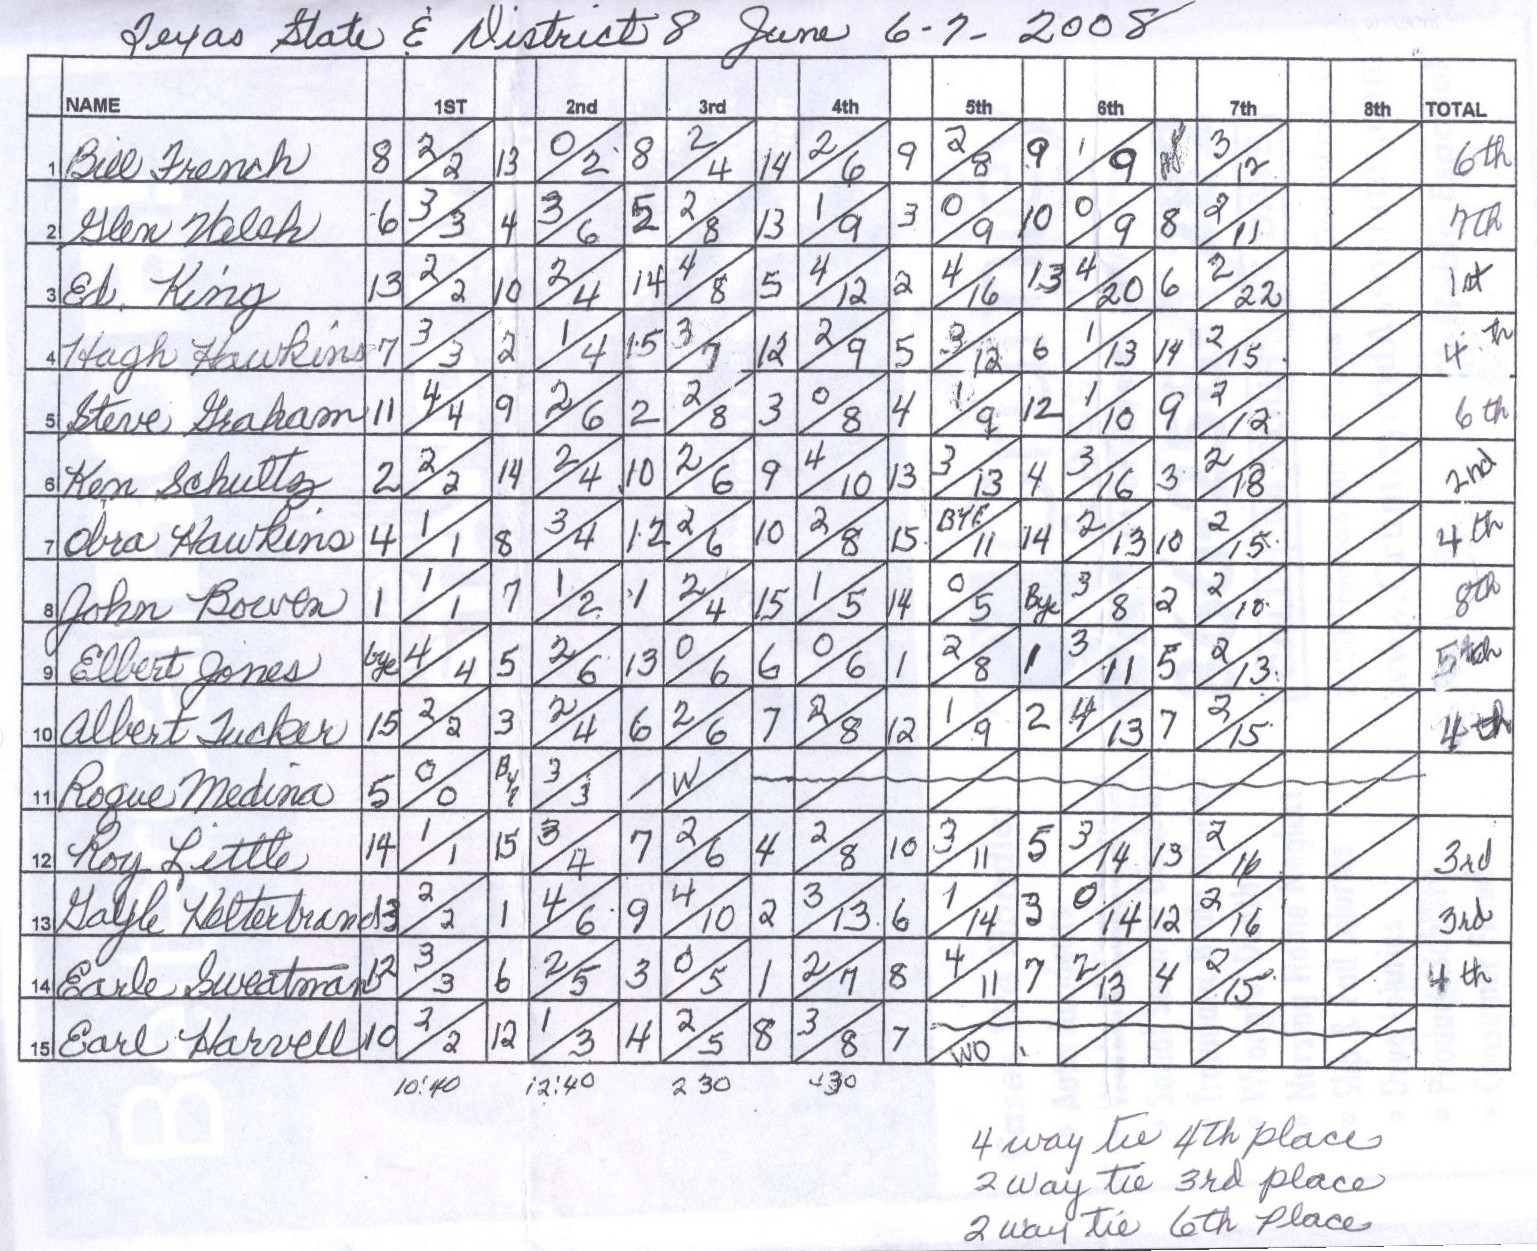 Texas State & District 8 June 6-7- 2008
NAME 1ST 2nd 3rd 4th 5th 6th 7th 8th TOTAL
1 Bill French 8 2/2 13 0/2 8 2/4 14 2/6 9 2/8 9 1/9 3/12 6th
2 Glen Welsh 6 3/3 4 3/6 5 2/8 13 1/9 3 0/9 10 0/9 8 2/11 7th
3 Ed. King 13 2/2 10 2/4 14 4/8 5 4/12 2 4/16 13 4/20 6 2/22 1st
4 Hugh Hawkins 7 3/3 2 1/4 15 3/7 12 2/9 5 3/12 6 1/13 14 2/15 4th
5 Steve Graham 11 4/4 9 2/6 2 2/8 3 0/8 4 1/9 12 1/10 9 2/12 6th
6 Ken Schultz 2 2/2 14 2/4 10 2/6 9 4/10 13 3/13 4 3/16 3 2/18 2nd
7 Obra Hawkins 4 1/1 8 3/4 12 2/6 10 2/8 15 BYE/11 14 2/13 10 2/15 4th
8 John Bowen 1 1/1 7 1/2 1 2/4 15 1/5 14 0/5 Bye 3/8 2 2/10 8th
9 Elbert Jones bye 4/4 5 2/6 13 0/6 6 0/6 1 2/8 1 3/11 5 2/13 5th
10 Albert Tucker 15 2/2 3 2/4 6 2/6 7 2/8 12 1/9 2 4/13 7 2/15 4th
11 Rogue Medina 5 0/0 Bye 3/3 W
12 Roy Little 14 1/1 15 3/4 7 2/6 4 2/8 10 3/11 5 3/14 13 2/16 3rd
13 Gayle Holterbrand 3 2/2 1 4/6 9 4/10 2 3/13 6 1/14 3 0/14 12 2/16 3rd
14 Earle Sweatman 12 3/3 6 2/5 3 0/5 1 2/7 8 4/11 7 2/13 4 2/15 4th
15 Earl Harvell 10 2/2 12 1/3 4 2/5 8 3/8 7 WO
10:40 12:40 2 30 430
4 way tie 4th place
2 way tie 3rd place
2 way tie 6th Place